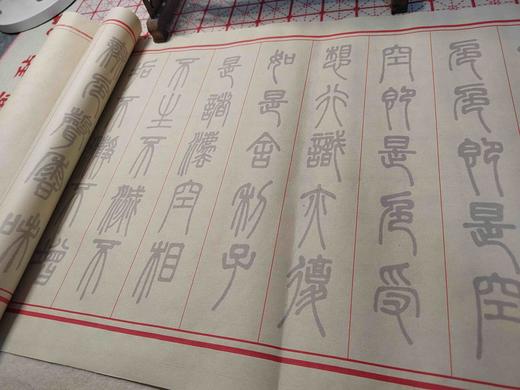 色色即是空
空即是色受
想行識亦復
如是舍利子
是諸灋空相
不生不滅不
垢不淨不增
色聲香味